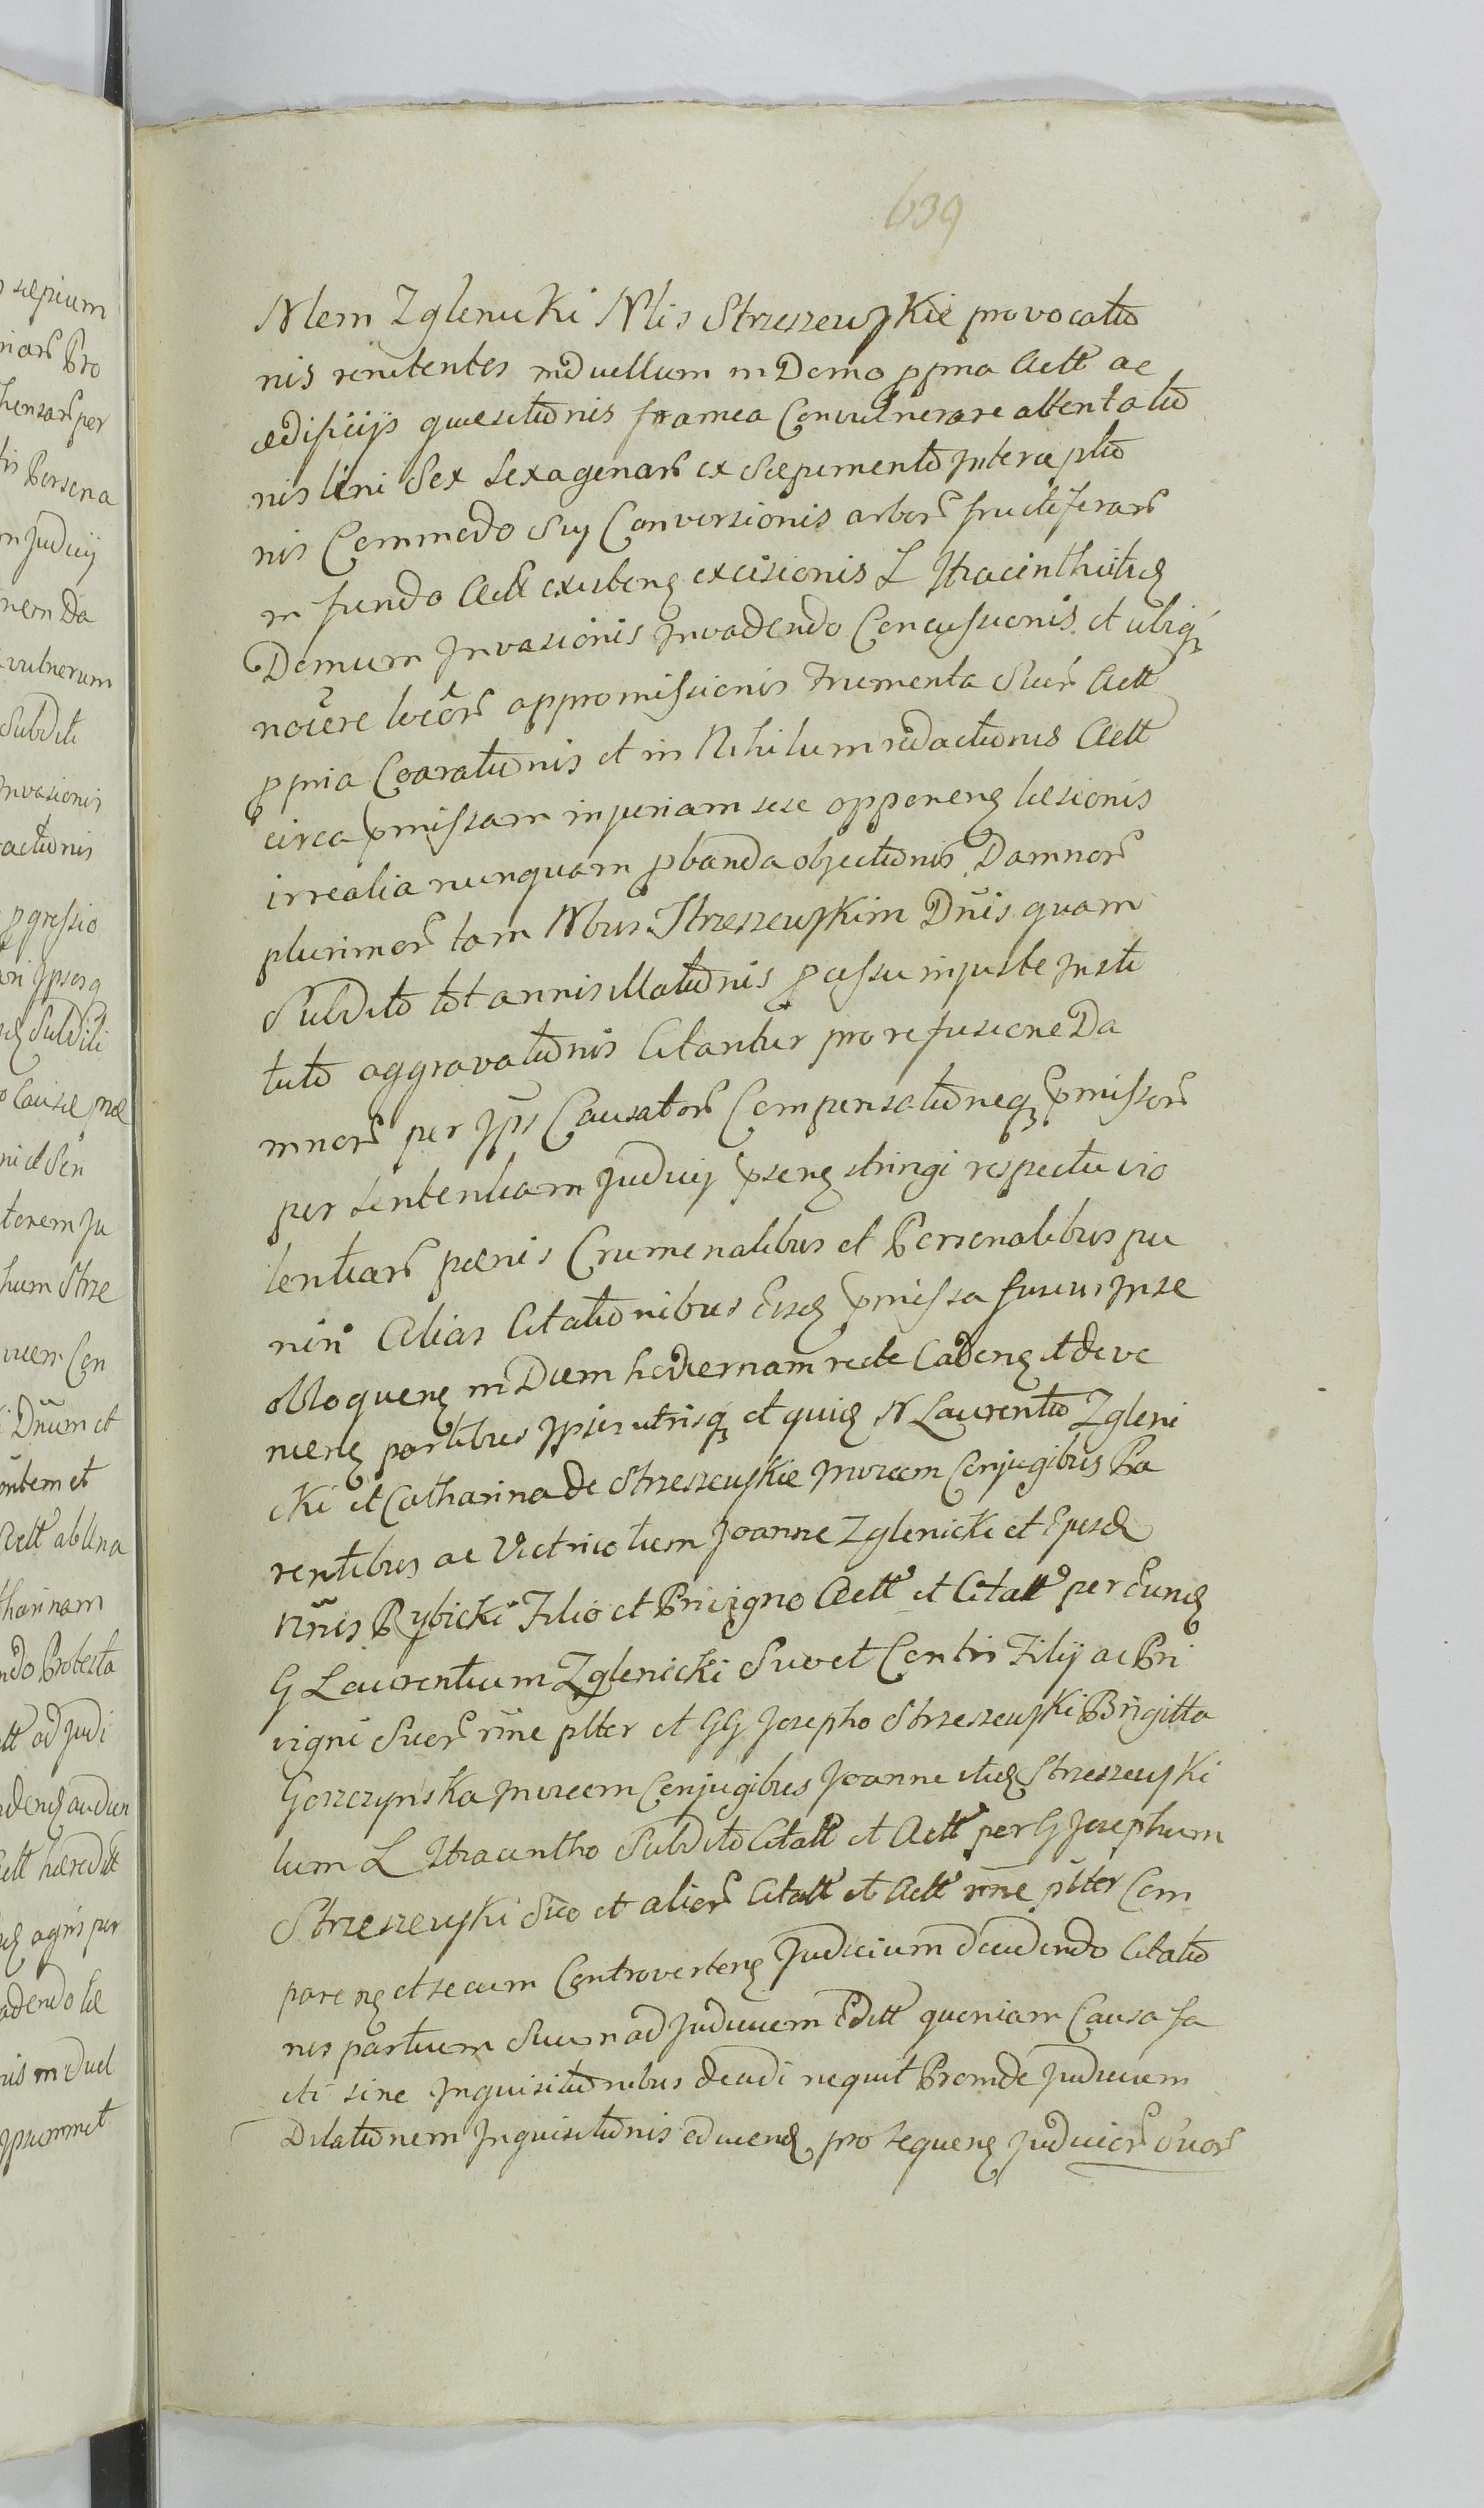 639
Nlem Zglenicki Nlis Strzeszewskie provocatio
nis renitentes in duellum in Domo ppria Actt ac
ædificiis quæsitionis framea Convulnerare attentatio
nis lini Sex Sexagenar ex Sæpimento Interceptio
nis Commodo Suj Conversionis arbor fructiferar
in fundo Actt existen excisionis L Hyacinthi itid
Domum Invasionis Invadendo Concussionis et ubiq
nocere locor appromissionis Frumenta Suor Actt
ppria Coarationis et in Nihilum redactionis Actt
circa pmissam injuriam sese opponen læsionis
irrealia nunquam pbanda objectionis Damnor
plurimor tam Nbus Strzeszewskim Dnis quam
Subdito tot annis illationis pcessu injuste Insti
tuto aggravationis Citantur pro refusione Da
mnor per Ips Causator Compensationeq pmissor
per Sententiam Judicij psen stringi respectu vio
lentiar pœnis Criminalibus et Personalibus pu
niri Alias Citationibus Eisd pmissa fusius In se
obloquen in Diem hodiernam recte Caden et deve
nien partibus Ipsis utrisq et quid N Laurentio Zgleni
cki et Catharina de Strzeszewskie Invicem Conjugibus Pa
rentibus ac Victrico tum Joanne Zglenicki et Ejusd
Nnis Rybicki Filio et Privigno Actt et Citatt per Eund
G Laurentium Zglenicki Suo et Contri Filij ac Pri
vigni Suor nne plter et GG Josepho Strzeszewski Brigitta
Goszczynska Invicem Conjugibus Joanne itid Strzeszewski
tum L Hyacintho Subdito Citatt et Actt per G Josephum
Strzeszewski Suo et alior Citatt et Actt nne plter Com
paren et secum Controverten Judicium decidendo Citatio
nes partium Suum ad Judicium Editt quoniam Causa fa
cti sine Inquisitionibus decidi nequit Proinde Judicium
Dilationem Inquisitionis educend pro sequen Judicior

sæpium
Pro
per
Persona
Judicij
nem Da
vulnerum
Subditi
Invasionis
actionis
pgressio
Subditi
Causæ præ
Strze
Dnum et
Actt ab Una
tharinam
Protesta
ad Judi
audien
agris per
adendo